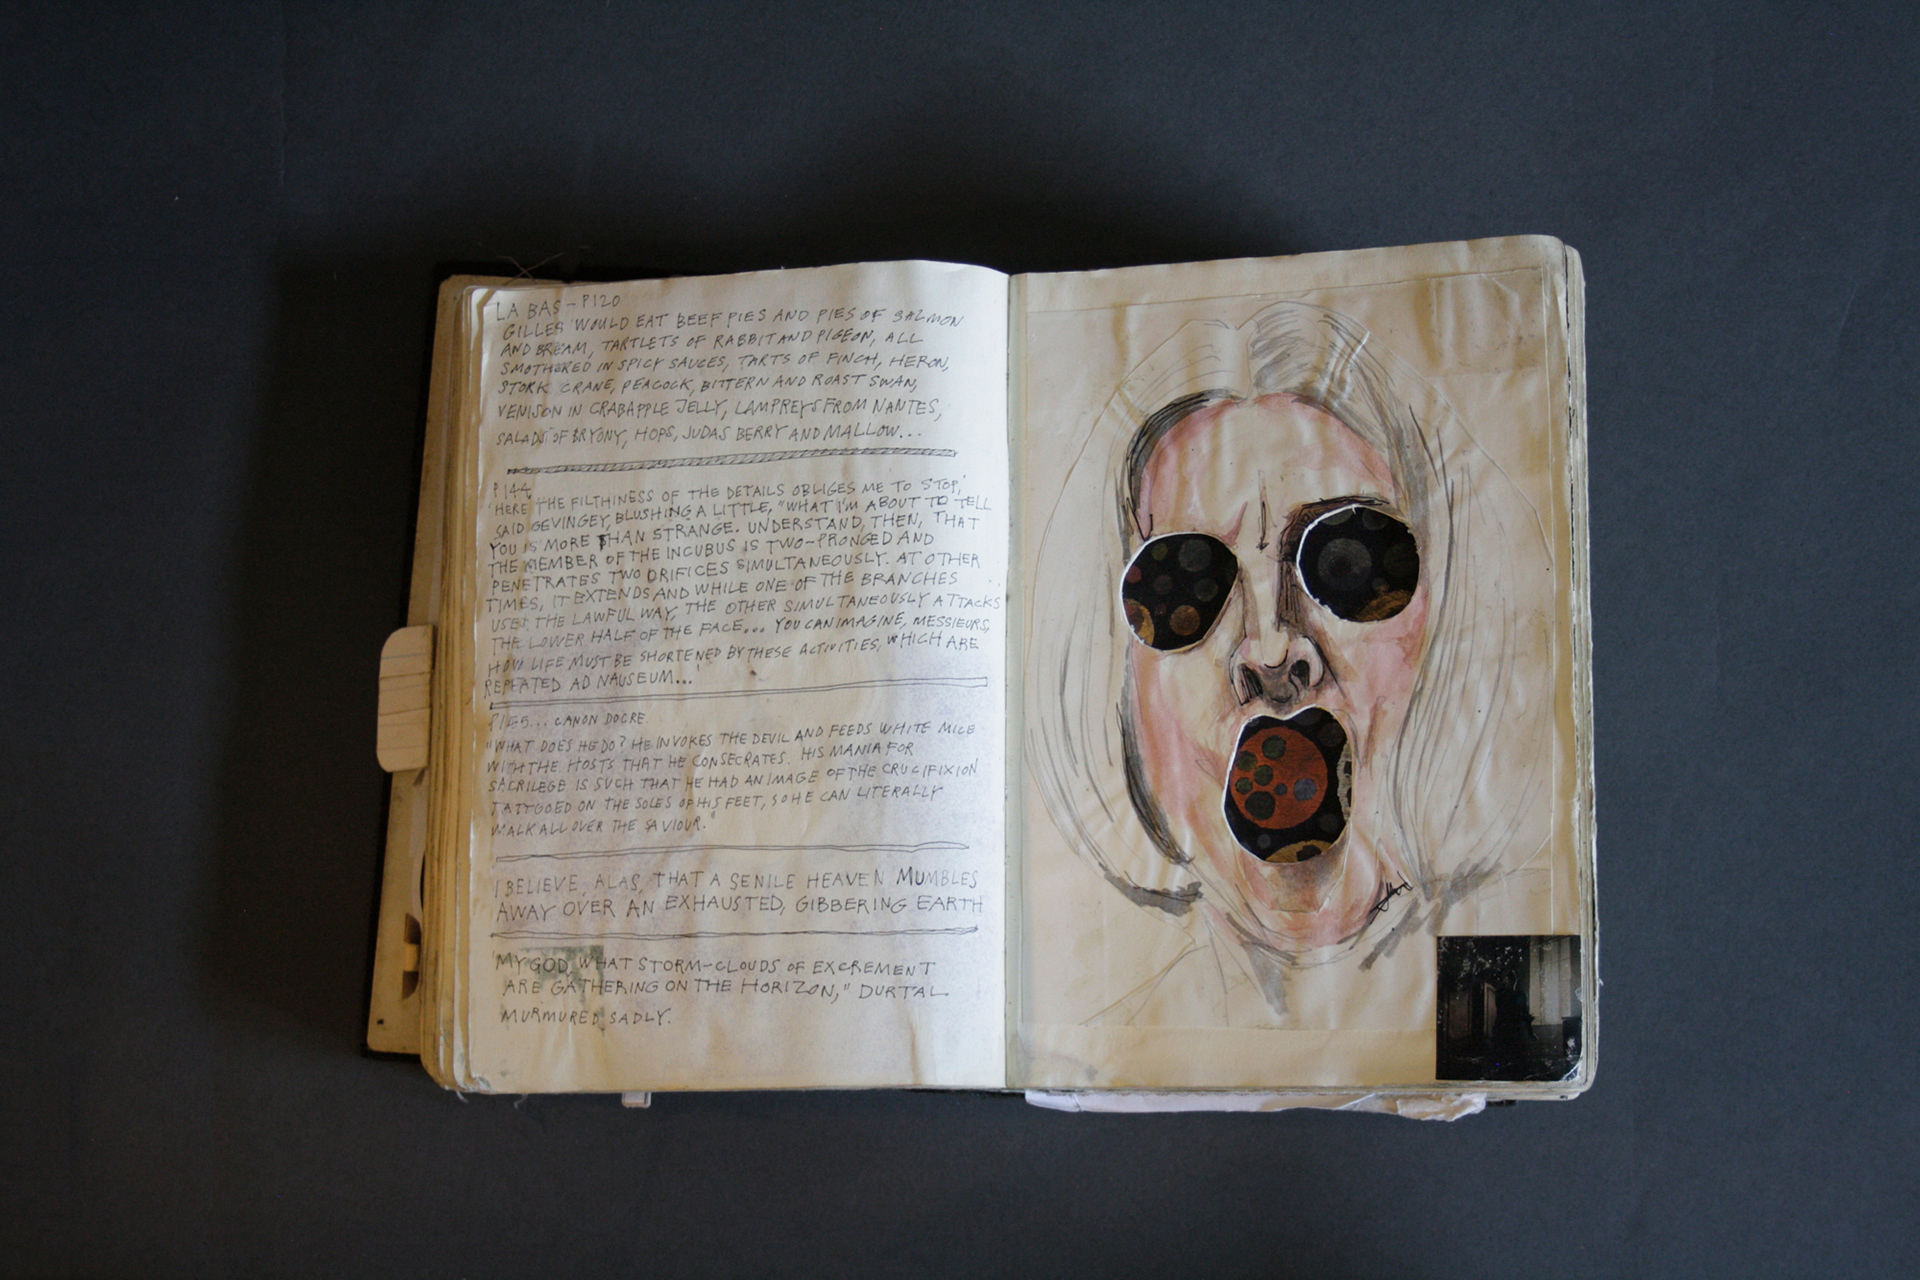 LA BAS – P120
GILLES WOULD EAT BEEF PIES AND PIES OF SALMON
AND BREAM, TARTLETS OF RABBIT AND PIGEON, ALL
SMOTHERED IN SPICY SAUCES, TARTS OF FINCH, HERON,
STORK CRANE, PEACOCK, BITTERN AND ROAST SWAN,
VENISON IN CRABAPPLE JELLY, LAMPREYS FROM NANTES,
SALADS OF BRYONY, HOPS, JUDAS BERRY AND MALLOW...
P144
'HERE THE FILTHINESS OF THE DETAILS OBLIGES ME TO STOP,'
SAID GEVINGEY, BLUSHING A LITTLE, "WHAT I'M ABOUT TO TELL
YOU IS MORE THAN STRANGE. UNDERSTAND, THEN, THAT
THE MEMBER OF THE INCUBUS IS TWO-PRONGED AND
PENETRATES TWO ORIFICES SIMULTANEOUSLY. AT OTHER
TIMES, IT EXTENDS AND WHILE ONE OF THE BRANCHES
USES THE LAWFUL WAY, THE OTHER SIMULTANEOUSLY ATTACKS
THE LOWER HALF OF THE FACE... YOU CAN IMAGINE, MESSIEURS,
HOW LIFE MUST BE SHORTENED BY THESE ACTIVITIES, WHICH ARE
REPEATED AD NAUSEUM...'
... CANON DOCRE.
"WHAT DOES HE DO? HE INVOKES THE DEVIL AND FEEDS WHITE MICE
WITH THE HOSTS THAT HE CONSECRATES. HIS MANIA FOR
SACRILEGE IS SUCH THAT HE HAD AN IMAGE OF THE CRUCIFIXION
TATTOOED ON THE SOLES OF HIS FEET, SO HE CAN LITERALLY
WALK ALL OVER THE SAVIOUR."
I BELIEVE, ALAS, THAT A SENILE HEAVEN MUMBLES
AWAY OVER AN EXHAUSTED, GIBBERING EARTH
'MY GOD, WHAT STORM-CLOUDS OF EXCREMENT
ARE GATHERING ON THE HORIZON," DURTAL
MURMURED SADLY.